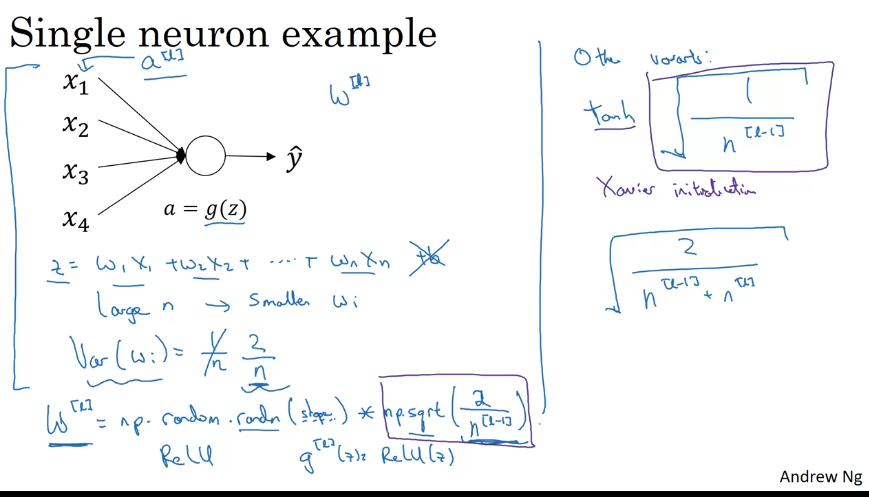 Single neuron example
x₁
a^[l]
W^[l]
x₂
x₃
ŷ
x₄
a = g(z)
z = w₁x₁ + w₂x₂ + ..... + wₙxₙ +b
Large n → Smaller wᵢ
Var(wᵢ) = 1/n 2/n
W^[l] = np.random.randn(shape) * np.sqrt(2/n^[l-1])
ReLU g^[l](z) = ReLU(z)
Other variants:
tanh √(1/n^[l-1])
Xavier initialization
√(2/(n^[l-1] + n^[l]))
Andrew Ng